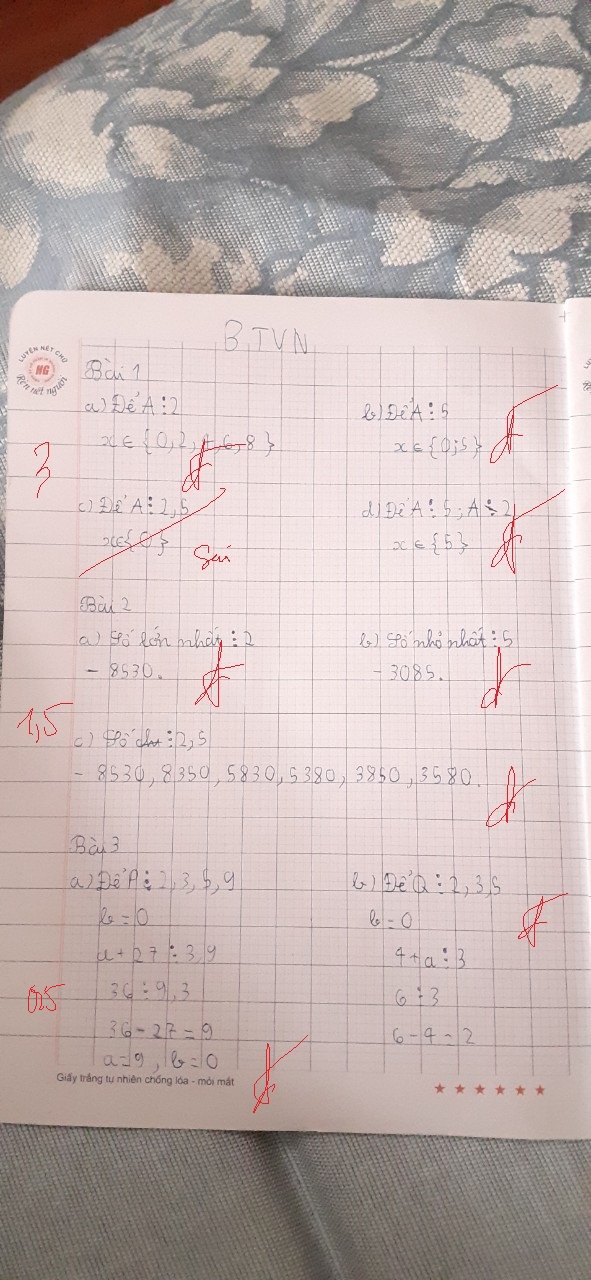 BTVN
LUYỆN NÉT CHỮ
HG
Rèn nết người
Bài 1
a) Để A ⋮ 2
x ∈ {0, 2, 4, 6, 8}
đ
b) Để A ⋮ 5
x ∈ {0; 5}
đ
3
c) Để A ⋮ 2, 5
x ∈ {0}
Sai
d) Để A ⋮ 5; A ⋮̸ 2
x ∈ {5}
đ
Bài 2
a) Số lớn nhất ⋮ 2
- 8530.
đ
b) Số nhỏ nhất ⋮ 5
- 3085.
đ
1,5
c) Số ⋮ 2, 5
- 8530, 8350, 5830, 5380, 3850, 3580.
đ
Bài 3
a) Để ⋮ 2, 3, 5, 9
b = 0
a + 27 ⋮ 3, 9
36 ⋮ 9, 3
36 - 27 = 9
a = 9, b = 0
đ
b) Để Q ⋮ 2, 3, 5
b = 0
4 + a ⋮ 3
6 ⋮ 3
6 - 4 = 2
đ
Giấy trắng tự nhiên chống lóa - mỏi mắt